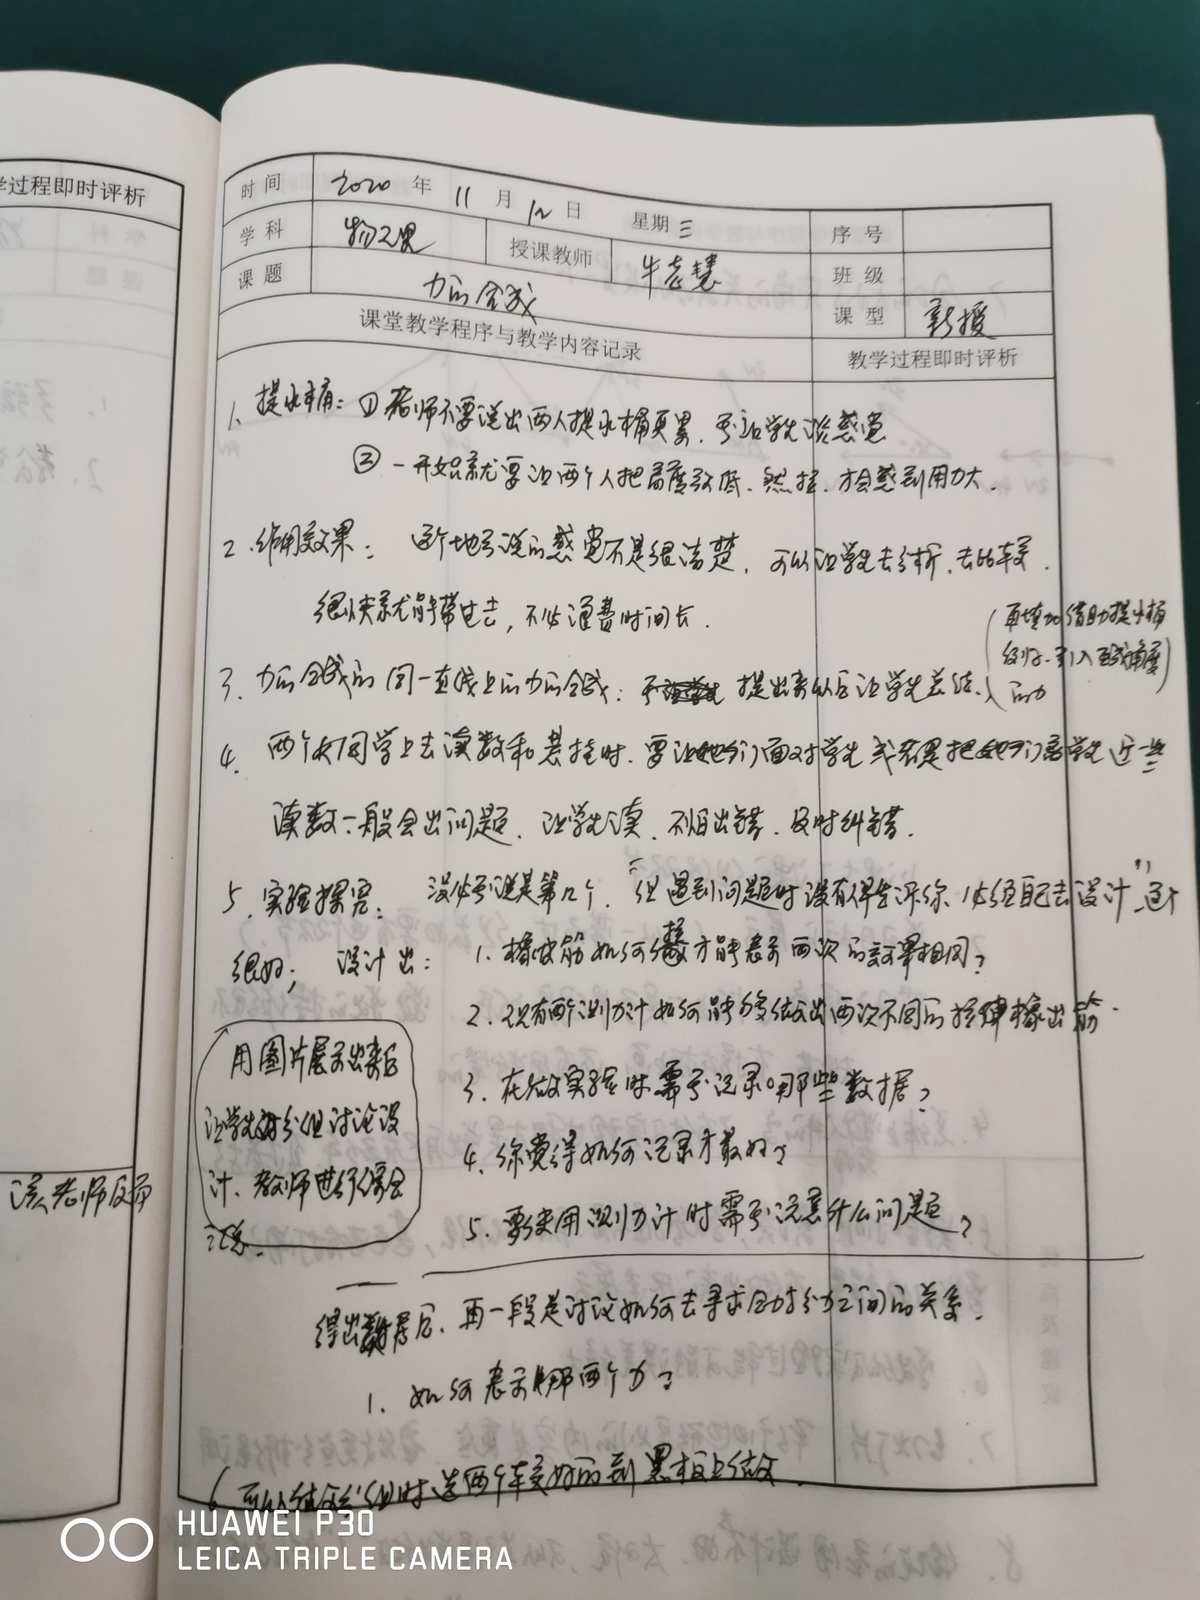 学过程即时评析
该老师反
时间 2020 年 11 月 12 日 星期三 序号
学科 物理 授课教师 牛志慧 班级
课题 力的合成 课型 新授
课堂教学程序与教学内容记录 教学过程即时评析
1、提水桶：①老师不要说出两人提水桶更累，要让学生谈感觉
② 一开始就要让两个人把高度放低、然挂，才会感到用力大。
2、作用效果：这个地方说的感觉不是很清楚，可以让学生去分析、去比较.
很快就能带过去，不必浪费时间长.
再增加借助提水桶
引入 角度
的力
3、力的合成的同一直线上的力的合成：提出来以后让学生总结.
4、两个女同学上去读数和悬挂时，要让她们面对学生或者是把她们离学生近些
读数一般会出问题，让学生读，不怕出错，及时纠错.
5、实验探究：没必要说是第几个，“但遇到问题时没有人告诉你，必须自己去设计”这个
很好； 设计出：1、橡皮筋如何做才能表示两次的效果相同？
2、只有两个测力计如何能够做出两次不同的拉伸橡皮筋.
用图片展示出来后
让学生分组讨论设
计、教师进行综合
3、在做实验时需要记录哪些数据？
4、你觉得如何记录才最好？
5、要使用测力计时需要注意什么问题？
得出数据后，再一段是讨论如何去寻求合力与分力之间的关系.
1、如何表示那两个力？
6 可以在分组时选两个较好的到黑板上做
HUAWEI P30
LEICA TRIPLE CAMERA